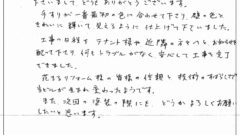 まことにどうもありがとうございます。
手すりが一番最初の色に合わせて下さり、壁の色と
きれいに輝いて見えるように仕上げて下さいました。
工事の日程を、テナント様や近隣の方々にもお知らせを
配って下さり何もトラブルがなく、安心して工事を完了
できました。
花まるリフォーム様の皆様の信頼と技術のすばらしさで
当ビルが生まれ変わったようです。
また、次回の塗装の際にも、どうかよろしくお願い
したいと思います。